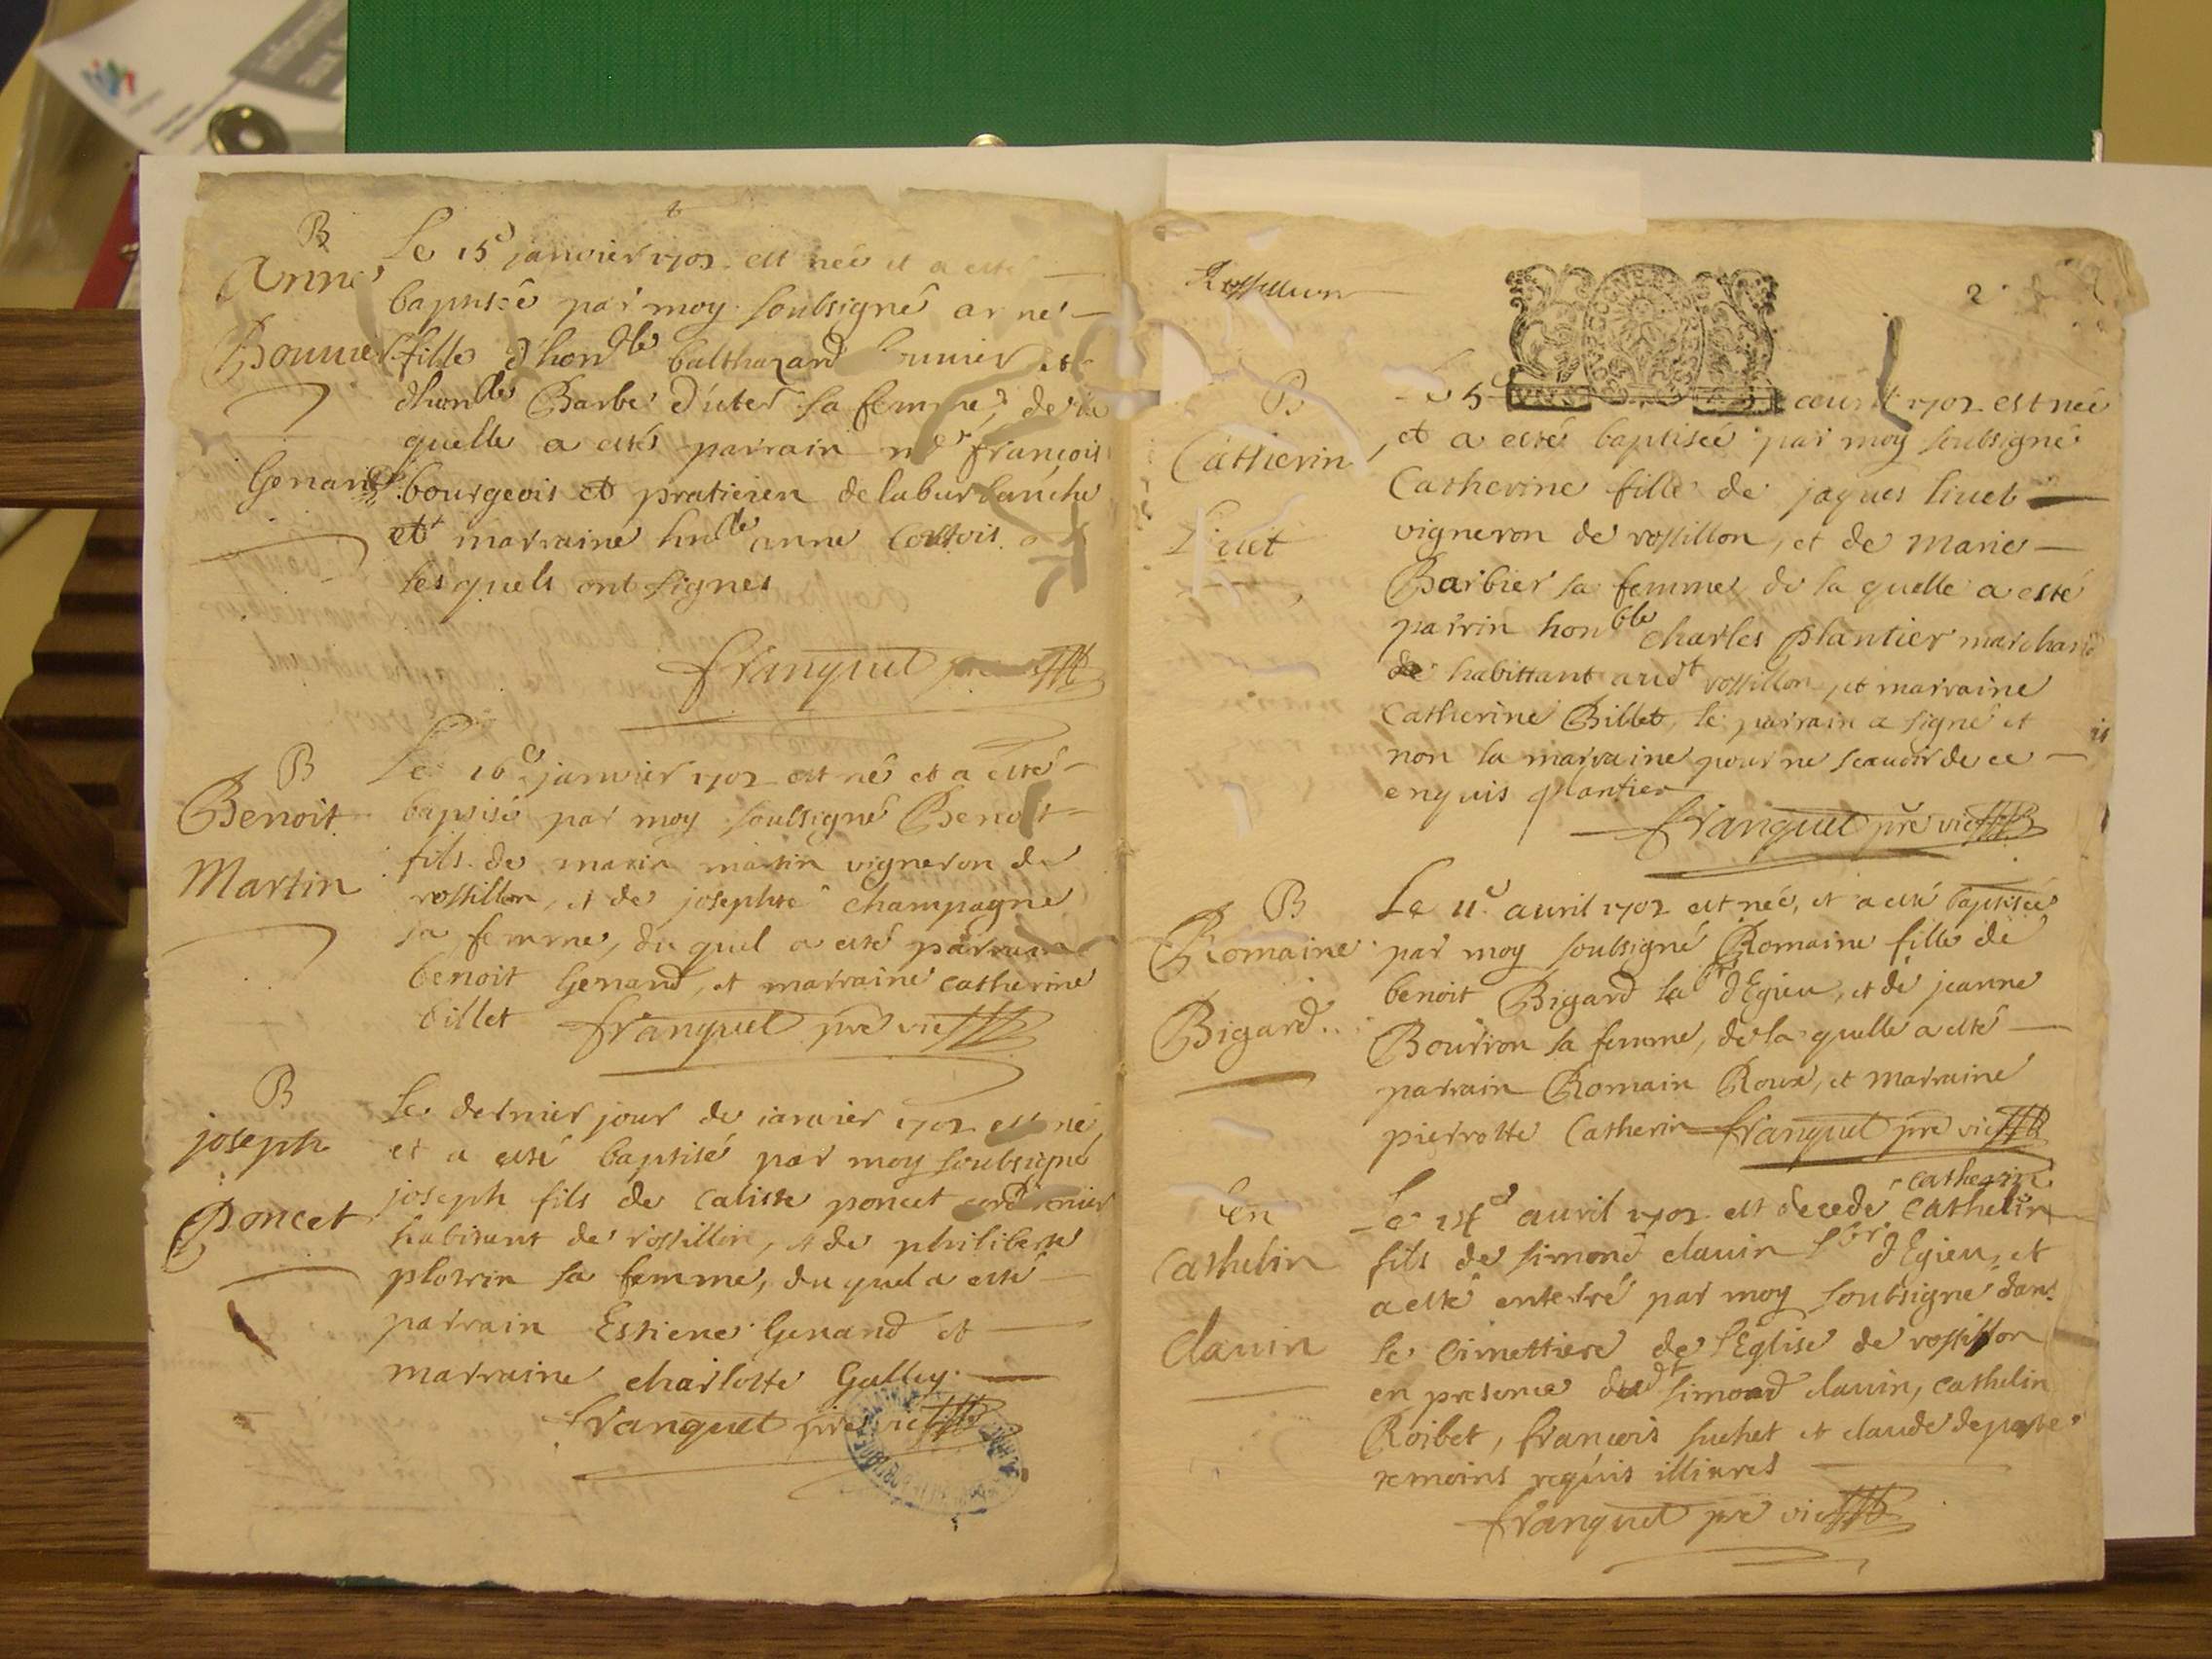 B
Anne
Bonnier
Genand
Le 15e janvier 1702 est née et a esté
baptisée par moy soubsigné anne
fille d'honble balthazard bonnier et
d'honble Barbe sa femme, de la
quelle a estés parrain françois
bourgeois et praticien de la burbanche
et marraine hnble anne
lesquels ont signes
franquet pre
B
Benoit
Martin
Le 16e janvier 1702 est né et a esté
baptisé par moy soubsigné Benoit
fils de marin martin vigneron de
rossillon, et de josephte champagne
sa femme, du quel a esté parrain
benoit Genand, et marraine catherine
billet franquet pre vic
B
joseph
Poncet
Le dernier jour de janvier 1702 est né,
et a esté baptisé par moy soubsigné
joseph fils de calisse poncet cordonnier
habitant de rossillon, et de philiberte
plottin sa femme, du quel a esté
parrain Estiene Genand et
marraine charlotte Galley
franquet pre vic
Rossillion
2
B
Catherin
Livet
Le 5 avril 1702 est née
et a estés baptisée par moy soubsigné
Catherine fille de jaques livet
vigneron de rossillon, et de Marie
Barbier sa femme, de la quelle a esté
parrin honble charles plantier marchand
de habittant audt rossillon, et marraine
Catherine Billet, le parrain a signé et
non la marraine pour ne scauoir de ce
enquis plantier
franquet pre vic
B
Romaine
Bigard
Le 11e auril 1702 est née, et a esté baptisée
par moy soubsigné Romaine fille de
benoit Bigard labr d'Egieu, et de jeanne
Bourion sa femme, de la quelle a esté
parrain Romain Roux, et marraine
pierrotte Catherin franquet pre vic
En
Cathelin
clauin
cathelin
Le auril 1702 est decedé Cathelin
fils de simond clauin lbr d'Egieu, et
a esté enterré par moy soubsigné dans
le cimettiere de l'Eglise de rossillon
en presence dudt simond clauin, cathelin
Roibet, françois suchet et claude
temoins requis illiteres
franquet pre vic